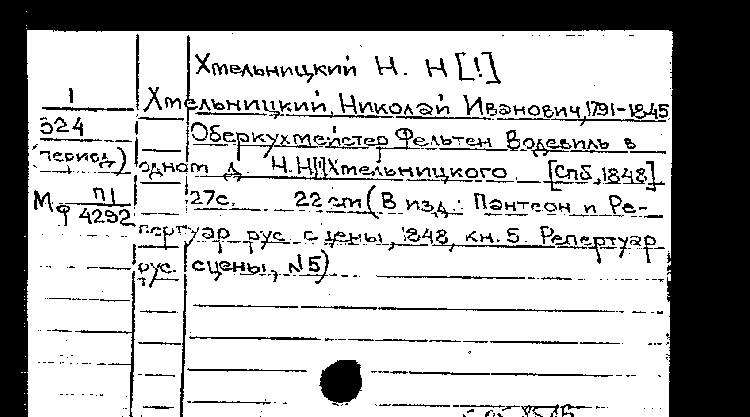 Хмельницкий Н. Н [!]
1
Хмельницкий, Николай Иванович, 1791-1845
324
Оберкухмейстер Фельтен Водевиль в
(период)
одном д. Н.Н[!]Хмельницкого [Спб, 1848]
Мф П1/4292
27с. 22 см (В изд.: Пантеон и Ре-
пертуар рус. сцены, 1848, кн. 5. Репертуар
рус. сцены, №5)